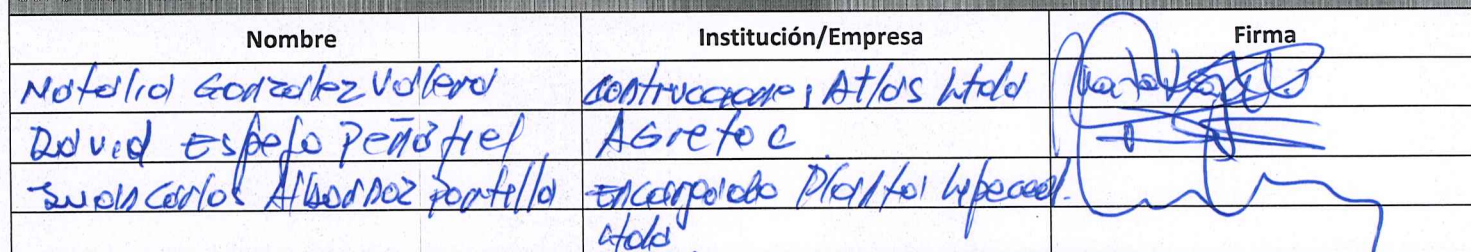 Nombre Institución/Empresa Firma
Natalia Gonzalez Vallend contrucciones Atlas Ltda
David Espejo Peñafiel AGretoc
Juan Carlos Albornoz Portella Encargado Planta
Ltda